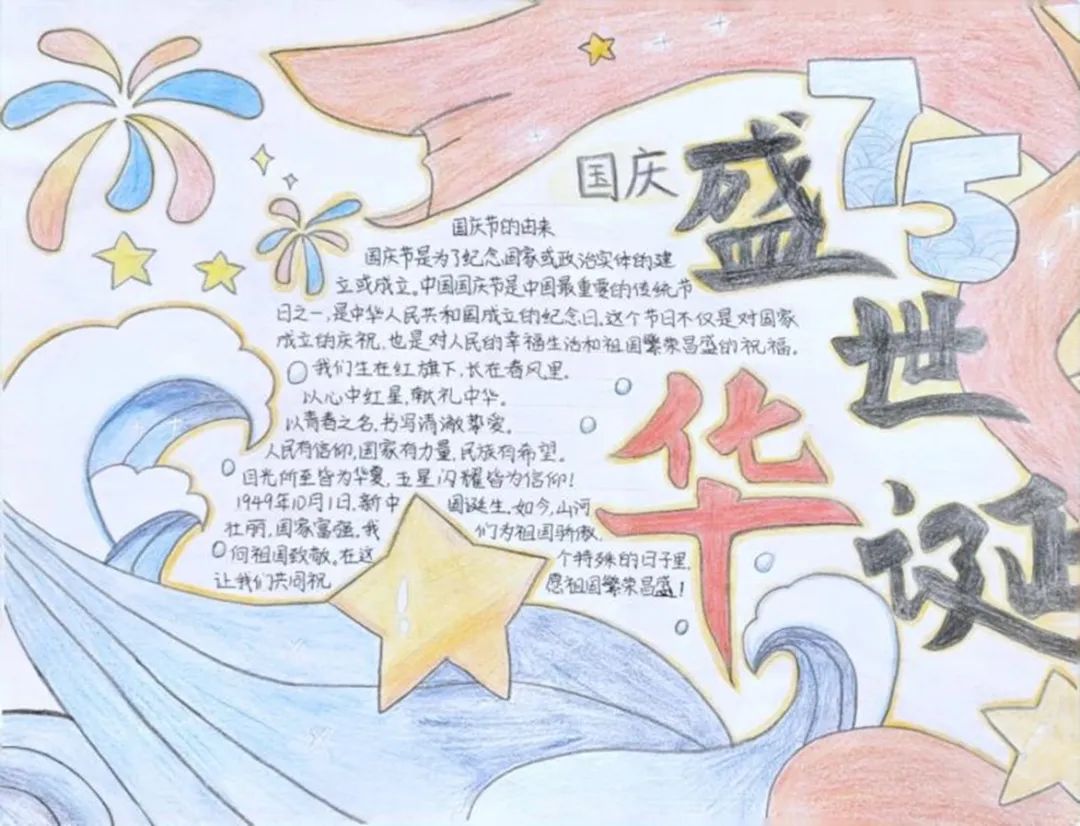 75
国庆
盛
世
华
诞
国庆节的由来
国庆节是为了纪念国家或政治实体的建
立或成立。中国国庆节是中国最重要的传统节
日之一,是中华人民共和国成立的纪念日。这个节日不仅是对国家
成立的庆祝,也是对人民的幸福生活和祖国繁荣昌盛的祝福。
我们生在红旗下,长在春风里.
以心中红星,献礼中华。
以青春之名,书写清澈挚爱。
人民有信仰,国家有力量,民族有希望。
目光所至皆为华夏,五星闪耀皆为信仰!
1949年10月1日,新中 国诞生。如今,山河
壮丽,国家富强。我 们为祖国骄傲,
向祖国致敬。在这 个特殊的日子里,
让我们共同祝 愿祖国繁荣昌盛!